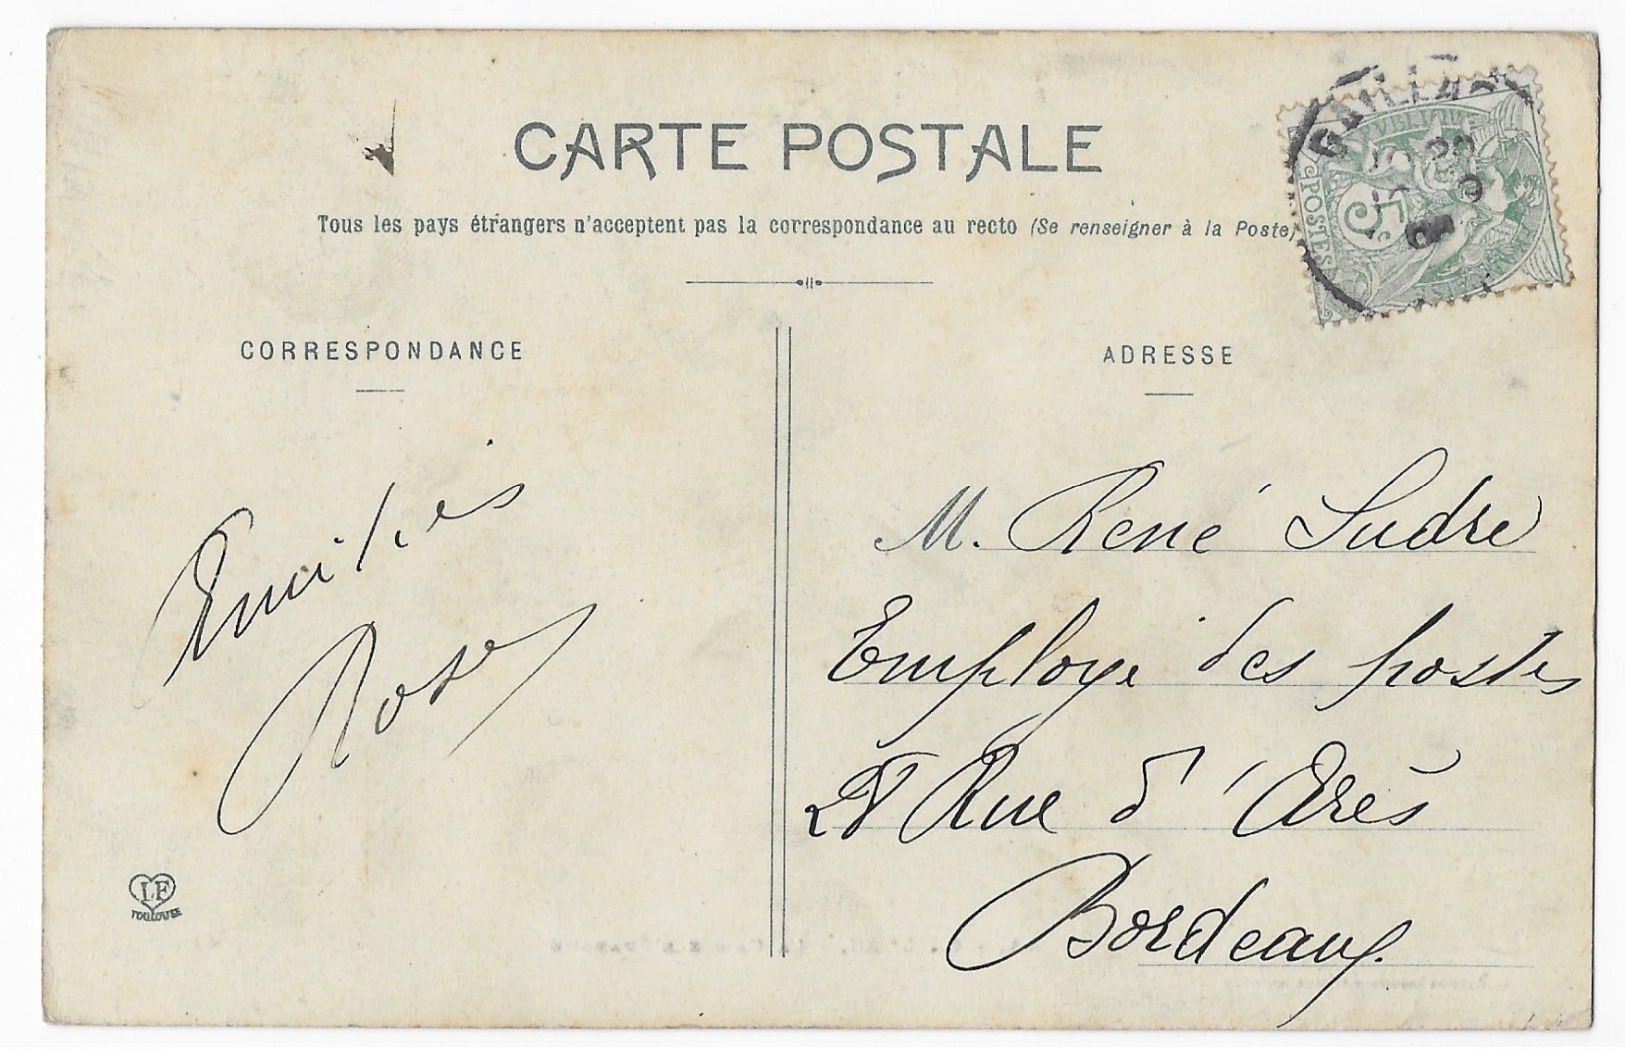 CARTE POSTALE
Tous les pays étrangers n'acceptent pas la correspondance au recto (Se renseigner à la Poste)
CORRESPONDANCE
ADRESSE
GAILLAC
POSTES
5c
Amitiés
Rose
M. René Sudre
Employé des postes
Rue d'Arès
Bordeaux.
LF
TOULOUSE